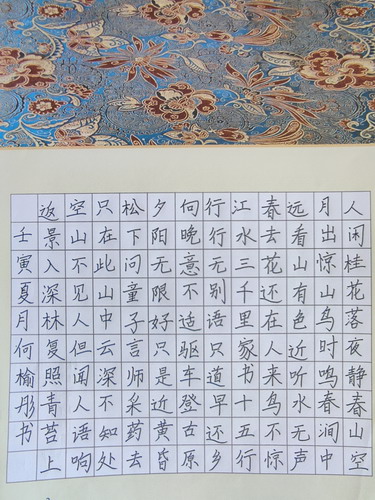 人闲桂花落夜静春山空
月出惊山鸟时鸣春涧中
远看山有色近听水无声
春去花还在人来鸟不惊
江水三千里家书十五行
行行无别语只道早还乡
向晚意不适驱车登古原
夕阳无限好只是近黄昏
松下问童子言师采药去
只在此山中云深不知处
空山不见人但闻人语响
返景入深林复照青苔上
壬寅夏月何榆彤书